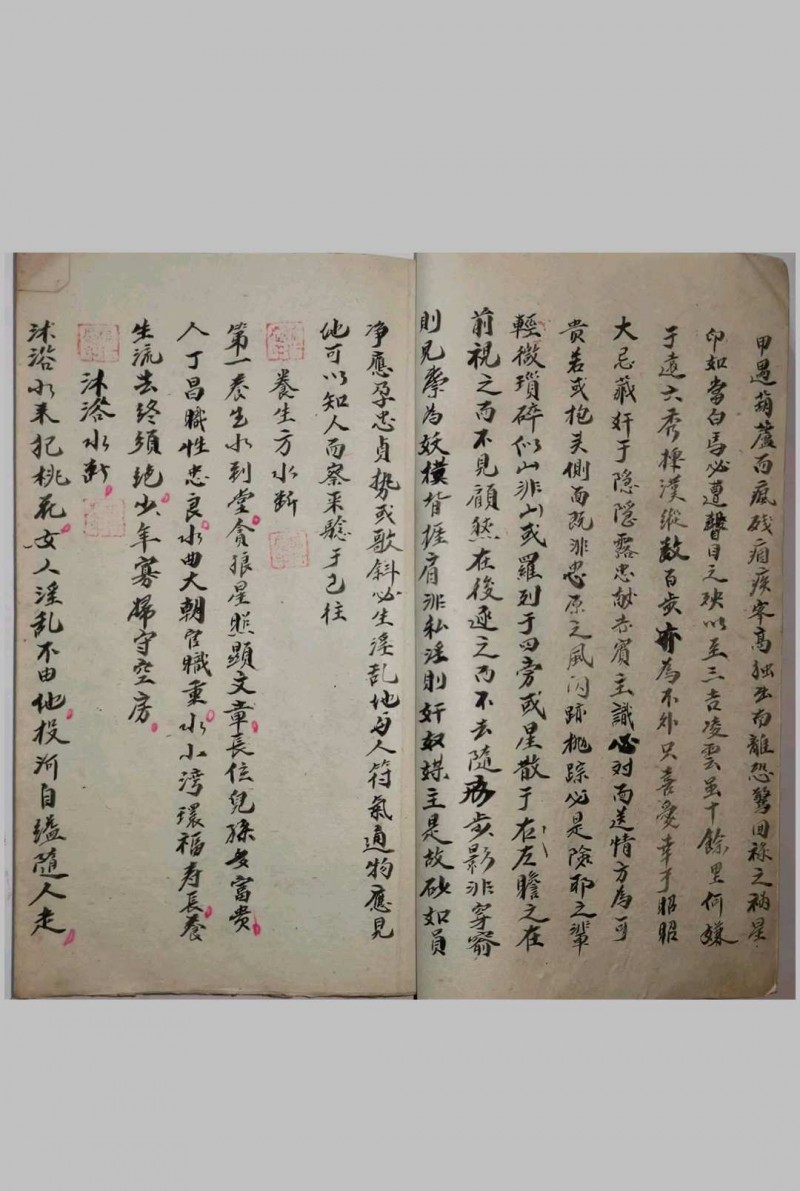 甲遇葫蘆而瘋殘痼疾宰高独出而離恐驚回祿之祸星
印如當白馬必遭瞽目之殃以至三吉凌雲虽十餘里何嫌
于遠六秀揀漢縱数百步亦為不外只喜愛幸于昭昭
大忌藏奸于隐隐露忠献赤賓主識心对而送情方為可
貴若或抱关側面既非忠原之風闪跡桃踪必是險邪之輩
輕微瑣碎似山非山或羅列于四旁或星散于右左瞻之在
前視之而不見顧然在後逐之而不去隨步影非穿窬
則見孽為妖摸背挨肩非私淫則奸奴媒主是故砂如員
净應孕忠貞势或歌斜必生淫乱地与人符氣通物應見
他可以知人而察来騐于已往
養生方水断
第一養生水到堂貪狼星照顯文章長位兒孫多富贵
人丁昌熾性忠良水曲大朝官職重水小湾環福寿長養
生流去终須绝少年寡婦守空房
沐浴水断
沐浴水来犯桃花女人淫乱不由他投河自缢隨人走